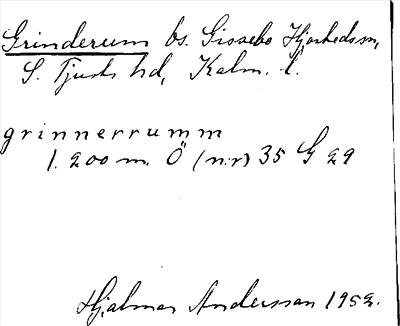 Grinderum bs. Gissebo Hjorteds sn,
S. Tjusts hd, Kalm. l.
grinnerrumm
1. 200 m. Ö (n:r) 35 G 29
Hjalmar Andersson 1952.